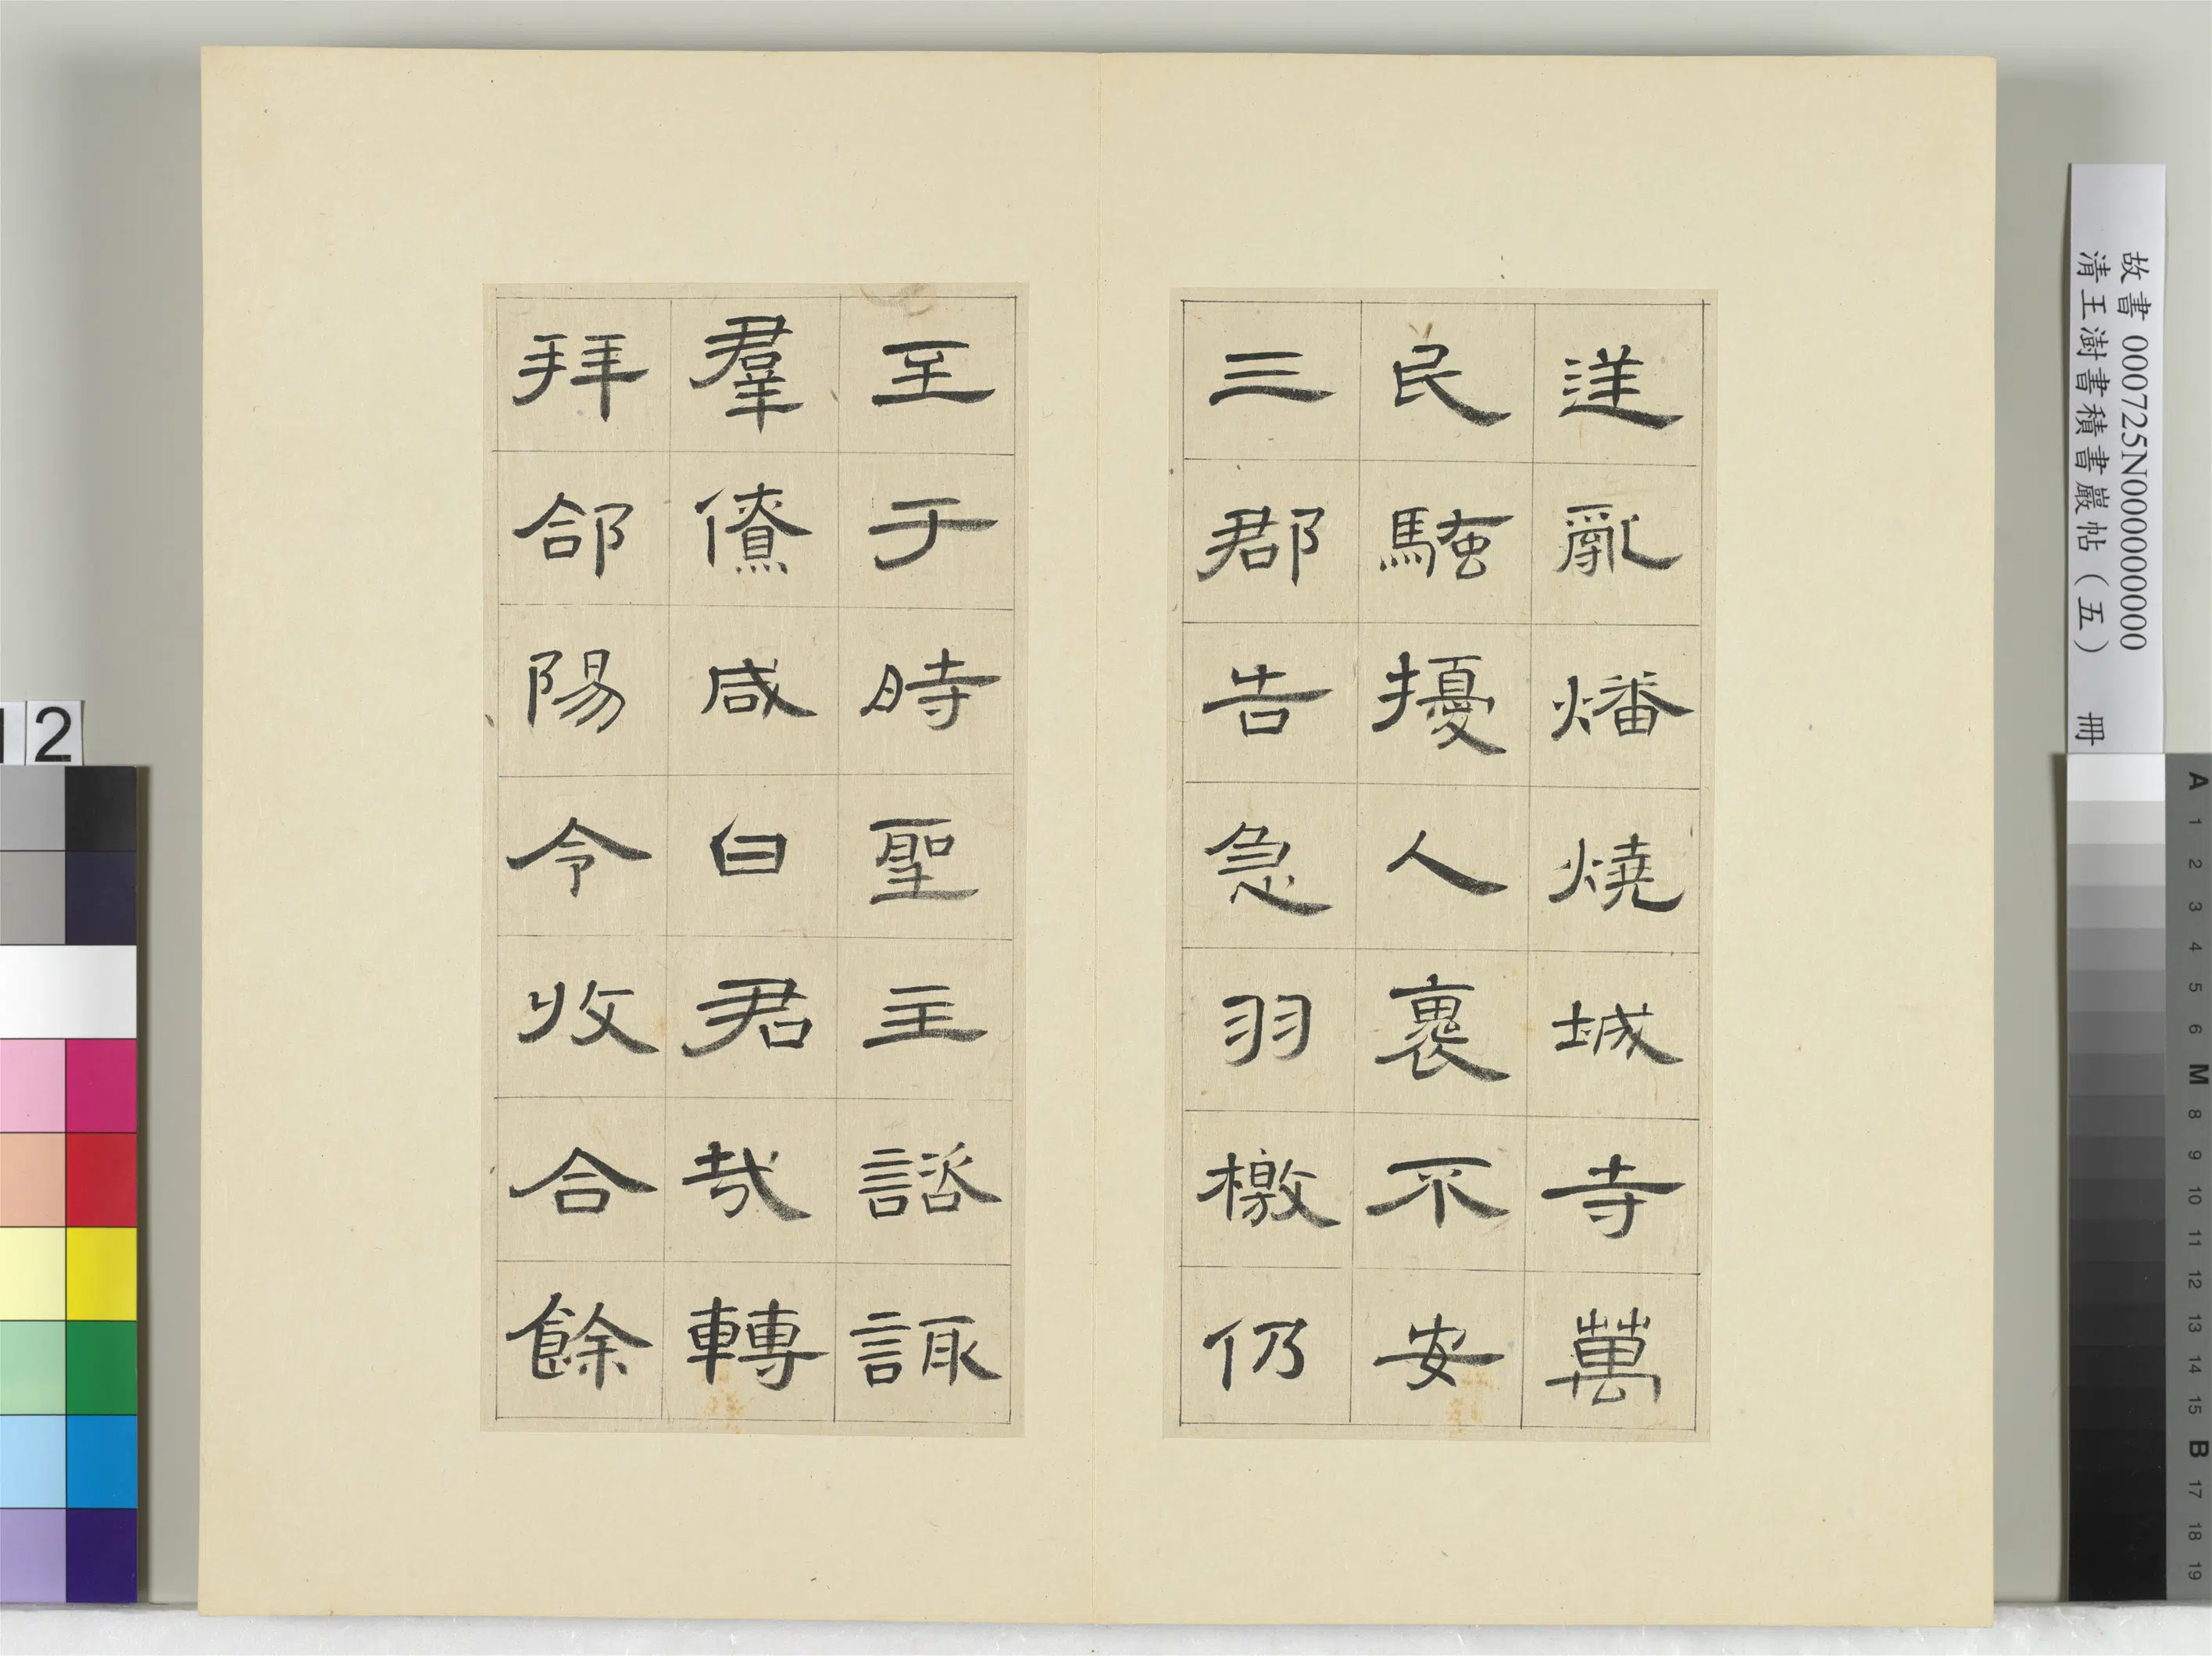 逆亂燔燒城寺萬
民騷擾人裹不安
三郡告急羽檄仍
至于時聖主諮諏
羣僚咸曰君哉轉
拜郃陽令收合餘
故書 000725N000000000
清王澍書積書巖帖（五） 冊
12
A 1 2 3 4 5 6 M 8 9 10 11 12 13 14 15 B 17 18 19